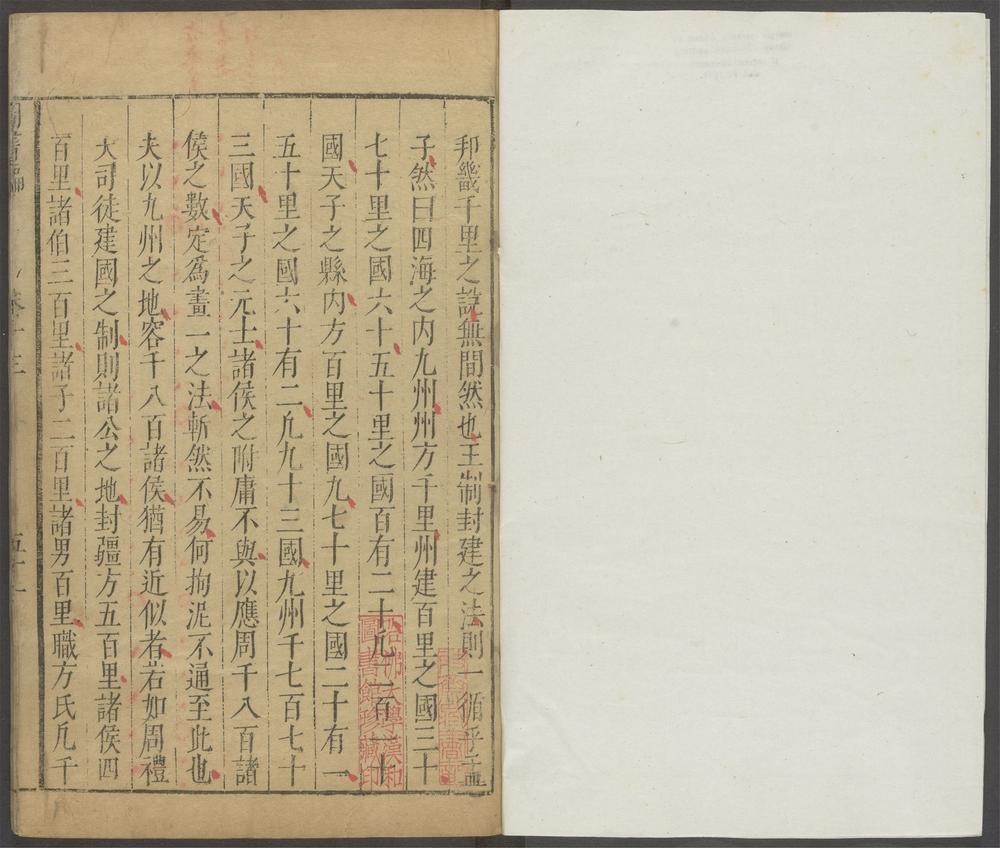 邦畿千里之說無間然也王制封建之法則一循乎孟
子然曰四海之内九州州方千里州建百里之國三十
七十里之國六十五十里之國百有二十凡二百一十
國天子之縣内方百里之國九七十里之國二十有一
五十里之國六十有二凡九十三國九州千七百七十
三國天子之元士諸侯之附庸不與以應周千八百諸
侯之數定爲畫一之法斬然不易何拘泥不通至此也
夫以九州之地容千八百諸侯猶有近似者若如周禮
大司徒建國之制則諸公之地封疆方五百里諸侯四
百里諸伯三百里諸子二百里諸男百里職方氏凡千
圖書編
卷 十三
哈佛大學漢和圖書館珍藏印